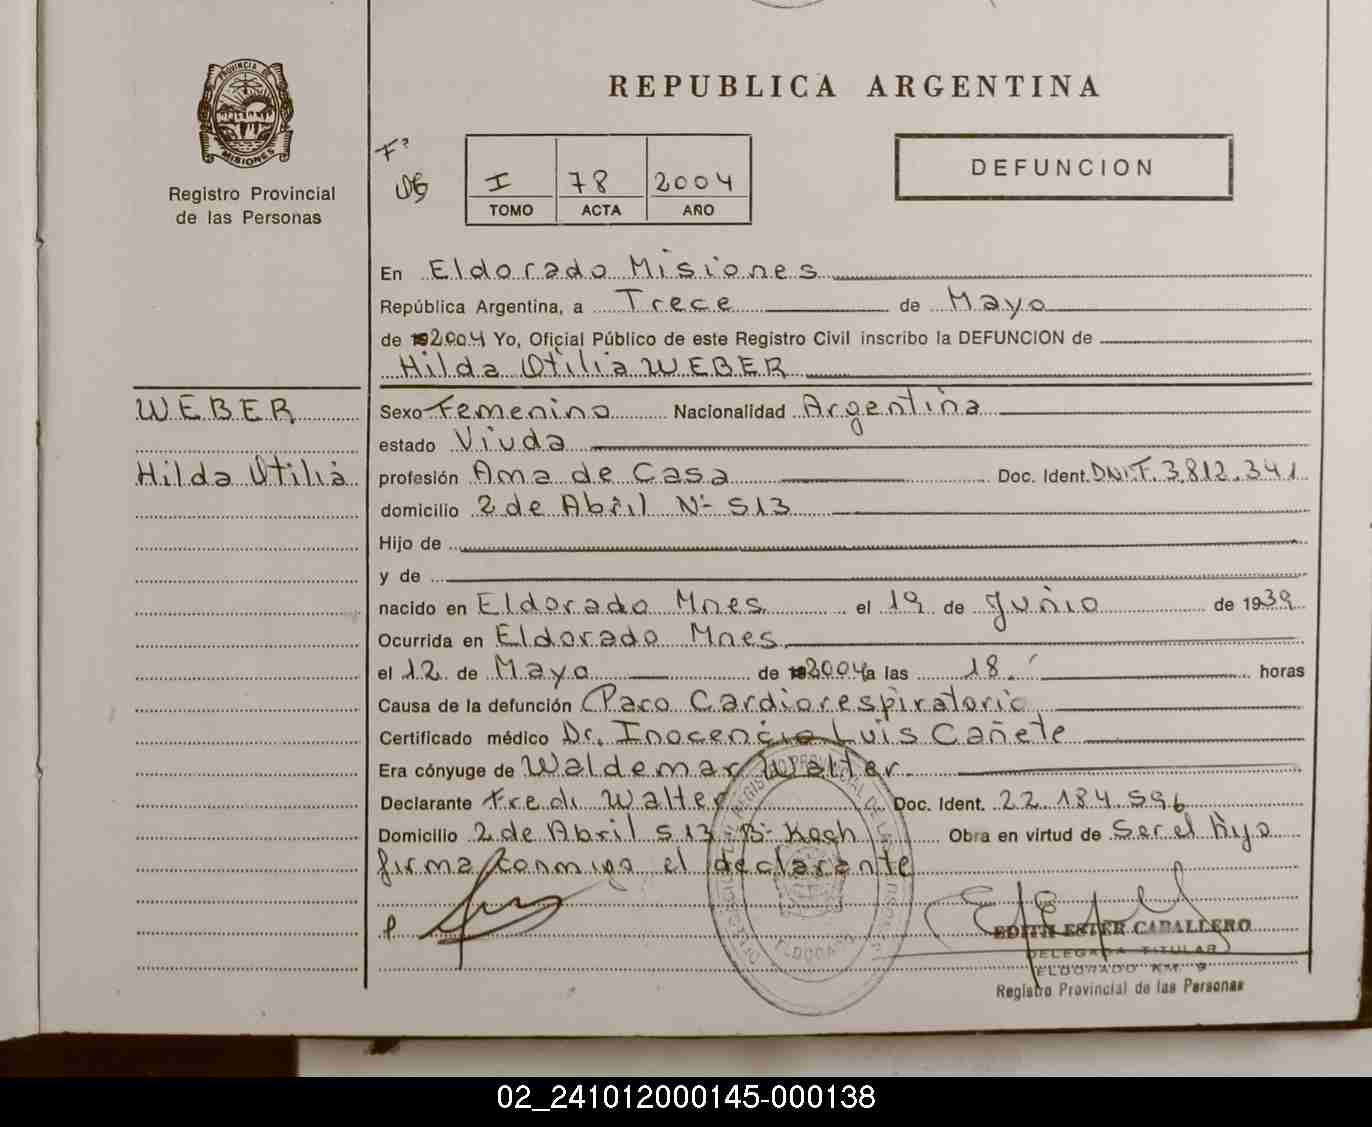 PROVINCIA DE
MISIONES
Registro Provincial
de las Personas
REPUBLICA ARGENTINA
Fº
I 78 2004
TOMO ACTA AÑO
DEFUNCION
En Eldorado Misiones
República Argentina, a Trece de Mayo
de 2004 Yo, Oficial Público de este Registro Civil inscribo la DEFUNCION de
Hilda Otilia WEBER
WEBER
Hilda Otilia
Sexo Femenino Nacionalidad Argentina
estado Viuda
profesión Ama de Casa Doc. Ident. DNI.F. 3.812.341
domicilio 2 de Abril Nº 513
Hijo de
y de
nacido en Eldorado Mnes el 19 de Junio de 1939
Ocurrida en Eldorado Mnes
el 12 de Mayo de 2004 a las 18. horas
Causa de la defunción Paro Cardiorespiratorio
Certificado médico Dr. Inocencio Luis Cañete
Era cónyuge de Waldemar Walter
Declarante Fredi Walter Doc. Ident. 22.184.596
Domicilio 2 de Abril 513 Bº Koch Obra en virtud de Ser el hijo
firma conmigo el declarante
EDITH ESTER CABALLERO
DELEGADA TITULAR
ELDORADO KM. 9
Registro Provincial de las Personas
02_241012000145-000138